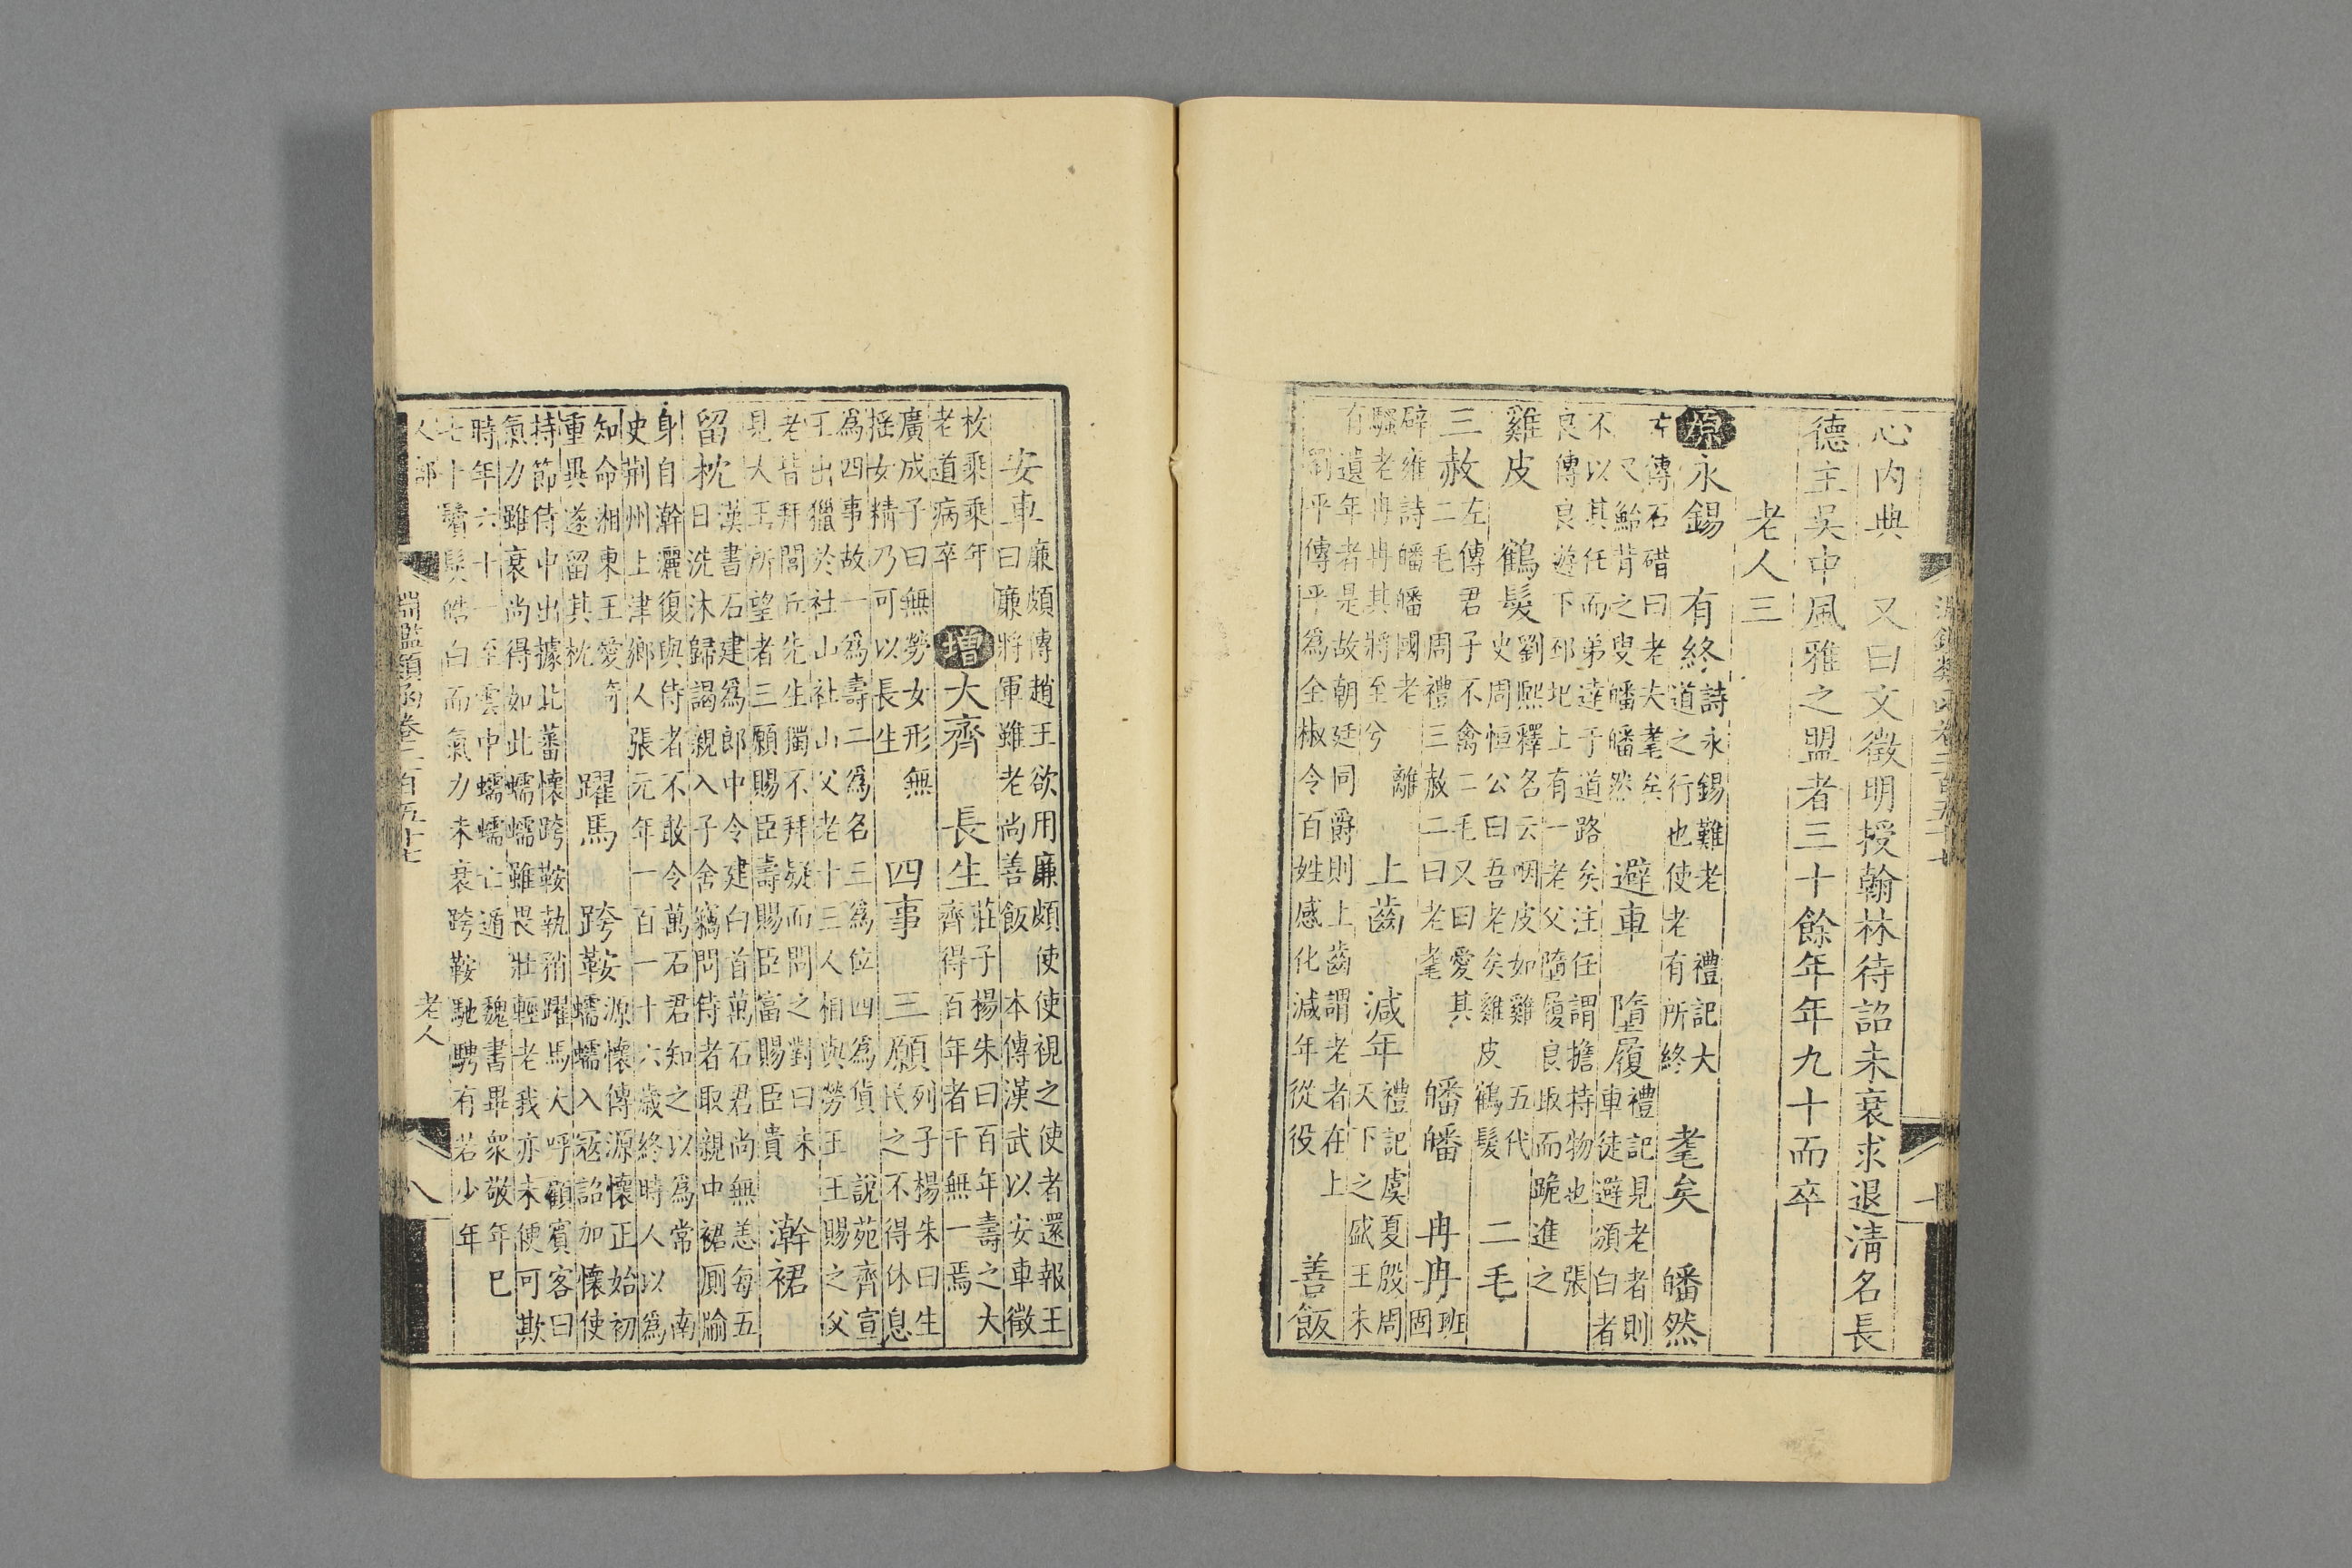 淵鑑類函卷二百五十七
心内典 又曰文徵明授翰林待詔未衰求退清名長
德主吳中風雅之盟者三十餘年年九十而卒
老人三
原永錫 有終 詩永錫難老 禮記大道之行也使老有所終 耄矣 皤然
左傳石碏曰老夫耄矣又鮐背之叟皤皤然 避車 墮履 禮記見老者則車徒避頒白者
不以其任而弟達于道路矣注任謂擔持物也 張良傳良遊下邳圯上有一老父墮履良取而跪進之
雞皮 鶴髮 劉熙釋名云咽皮如雞 五代史周恒公曰吾老矣雞皮鶴髮 二毛
三赦 左傳君子不禽二毛又曰愛其二毛 周禮三赦二曰老耄 皤皤 冉冉 班固
辟雍詩皤皤國老 離騷老冉冉其將至兮 上齒 減年 禮記虞夏殷周天下之盛王未
有遺年者是故朝廷同爵則上齒謂老者在上 劉平傳平爲全椒令百姓感化減年從役 善飯
安車 廉頗傳趙王欲用廉頗使使視之使者還報王曰廉將軍雖老尚善飯 本傳漢武以安車徵
枚乘乘年老道病卒 增大齊 長生 莊子楊朱曰百年壽之大齊得百年者千無一焉
廣成子曰無勞女形無摇女精乃可以長生 四事 三願 列子楊朱曰生民之不得休息
爲四事故一爲壽二爲名三爲位四爲貨 説苑齊宣王出獵於社山社山父老十三人相與勞王王賜之父
老皆拜閭丘先生獨不拜疑而問之對曰未見大王所望者三願賜臣壽賜臣富賜臣貴 澣裙
留枕 漢書石建爲郎中令建白首萬石君尚無恙每五日洗沐歸謁親入子舍竊問侍者取親中裙厠牏
身自澣灑復與侍者不敢令萬石君知之以爲常 南史荆州上津鄉人張元年一百一十六歲終時人以爲
知命湘東王愛奇重異遂留其枕 躍馬 跨鞍 源懷傳源懷正始初蠕蠕入寇詔加懷使
持節侍中出據北蕃懷跨鞍執矟躍馬大呼顧賓客曰氣力雖衰尚得如此蠕蠕雖畏壯輕老我亦未便可欺
時年六十一至雲中蠕蠕亡遁 魏書畢衆敬年巳七十鬚髮皓白而氣力未衰跨鞍馳騁有若少年
人部 淵鑑類函卷二百五十七 老人 八